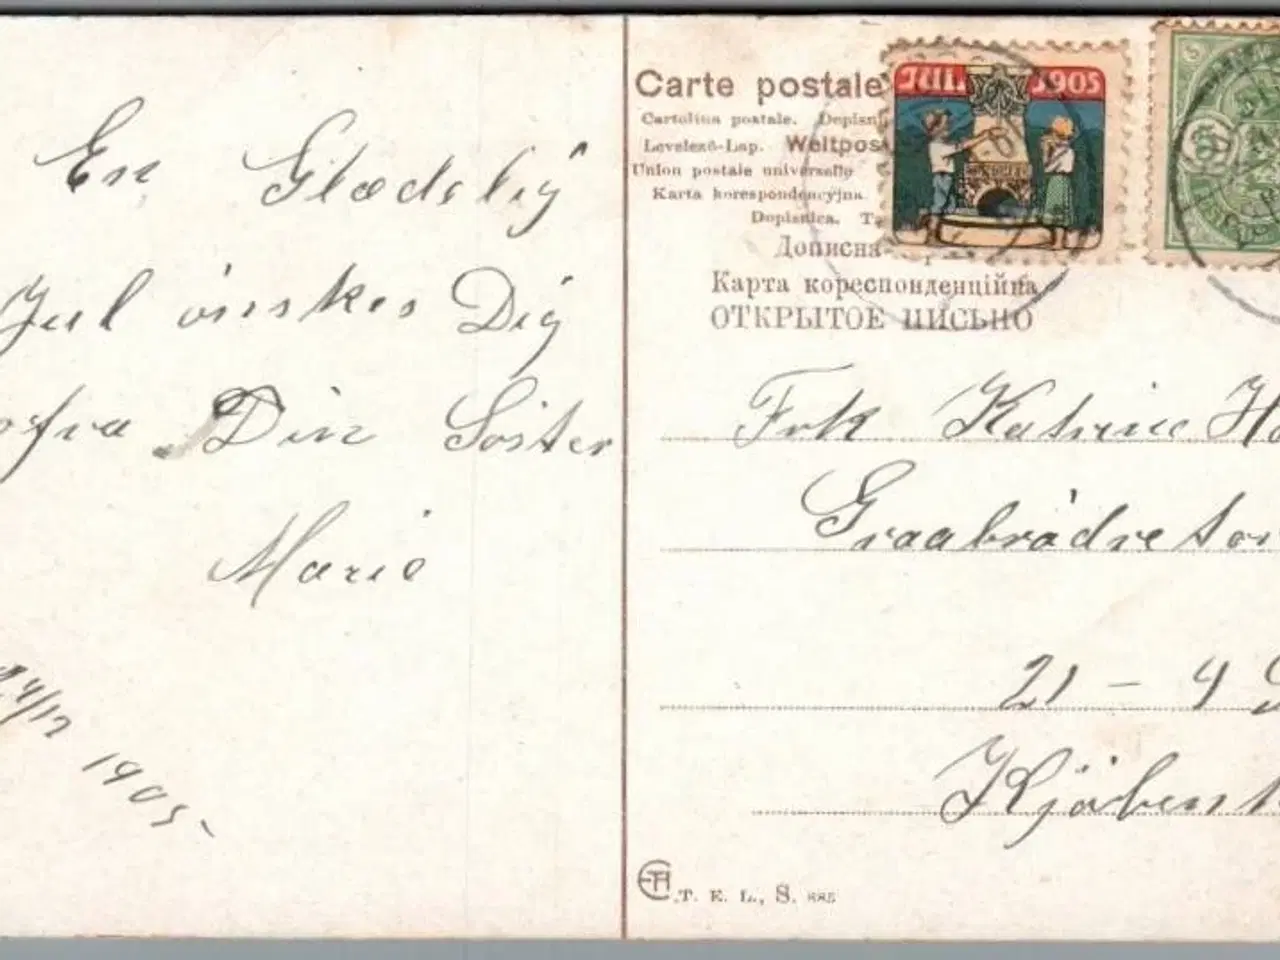 En Glædelig
Jul önskes Dig
fra Din Söster
Marie
24/12 1905
Carte postale
Cartolina postale. Dopisni
Levelező-Lap. Weltpos
Union postale universelle
Karta korespondencyjna.
Dopisnica. T
Дописна
Карта кореспонденційна
ОТКРЫТОЕ ПИСЬМО
JUL 1905
5
Frk Katrine Ha
Graabrödretor
21 - 4 S
Kjöbenh
T. E. L., S. 885